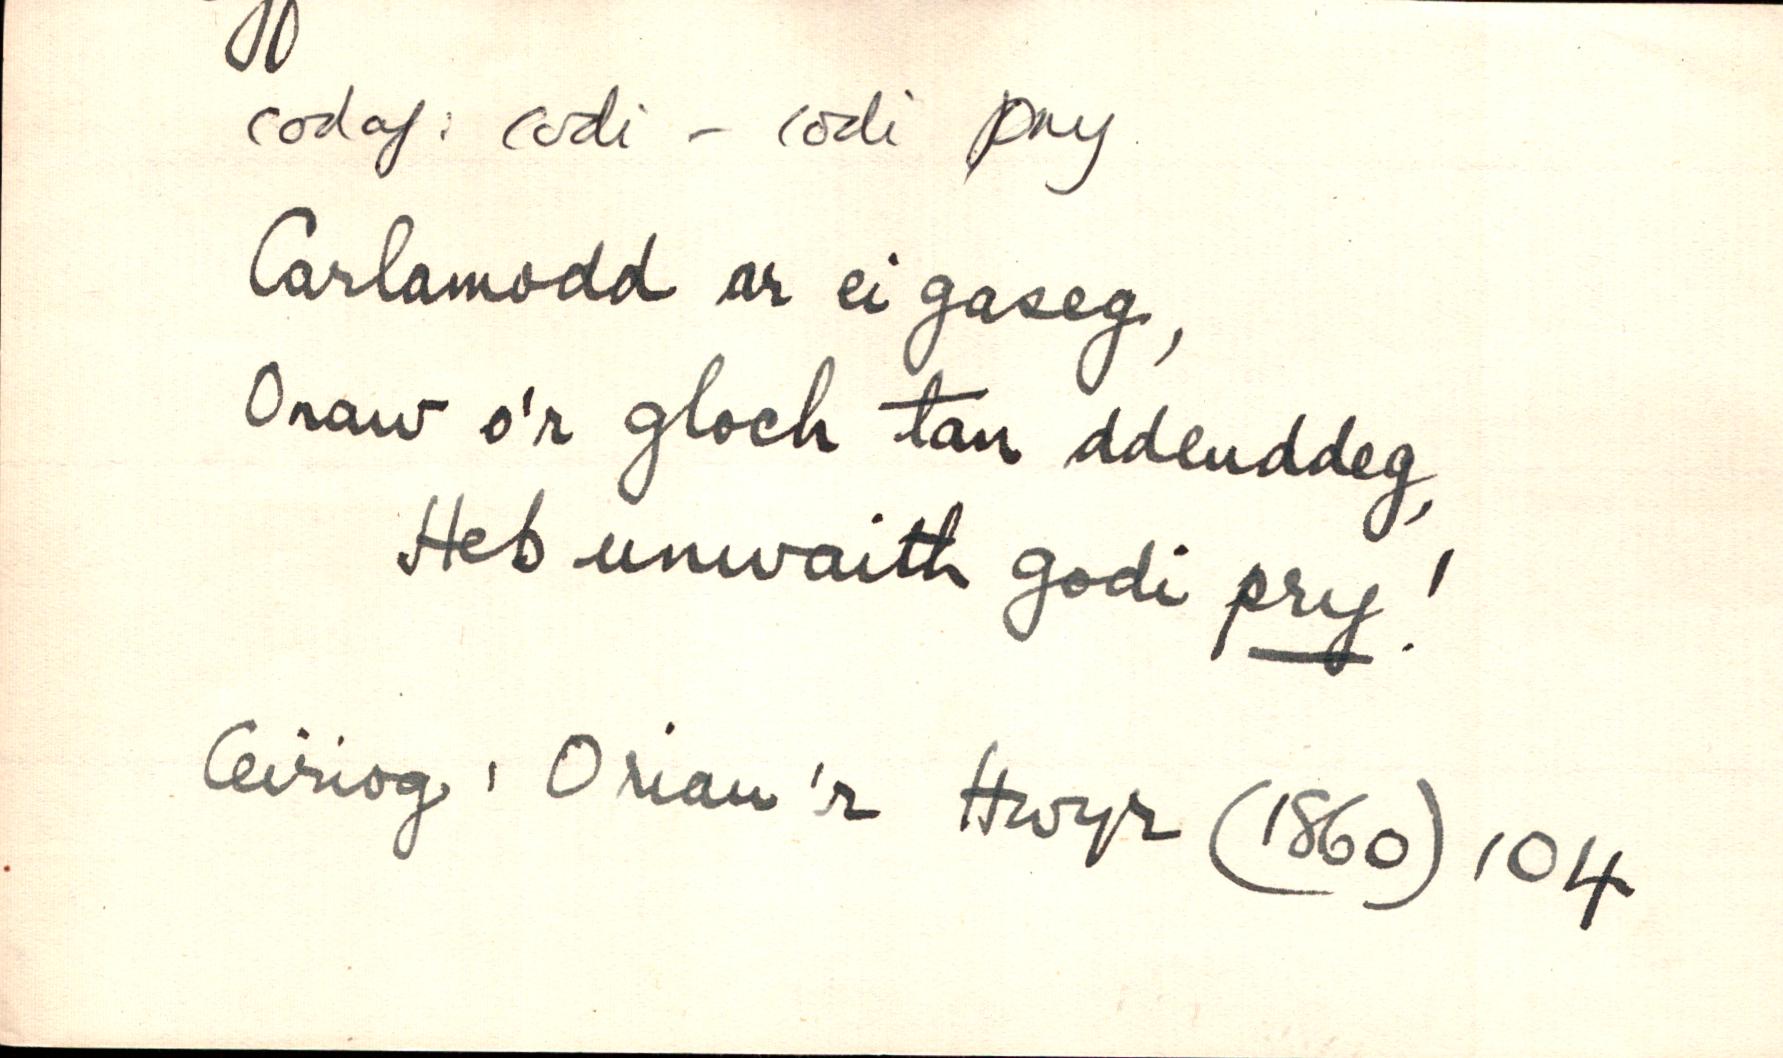 codaf: codi - codi pry
Carlamodd ar ei gaseg,
O naw o'r gloch tan ddeuddeg,
Heb unwaith godi pry!
Ceiriog, Oriau'r Hwyr (1860) 104